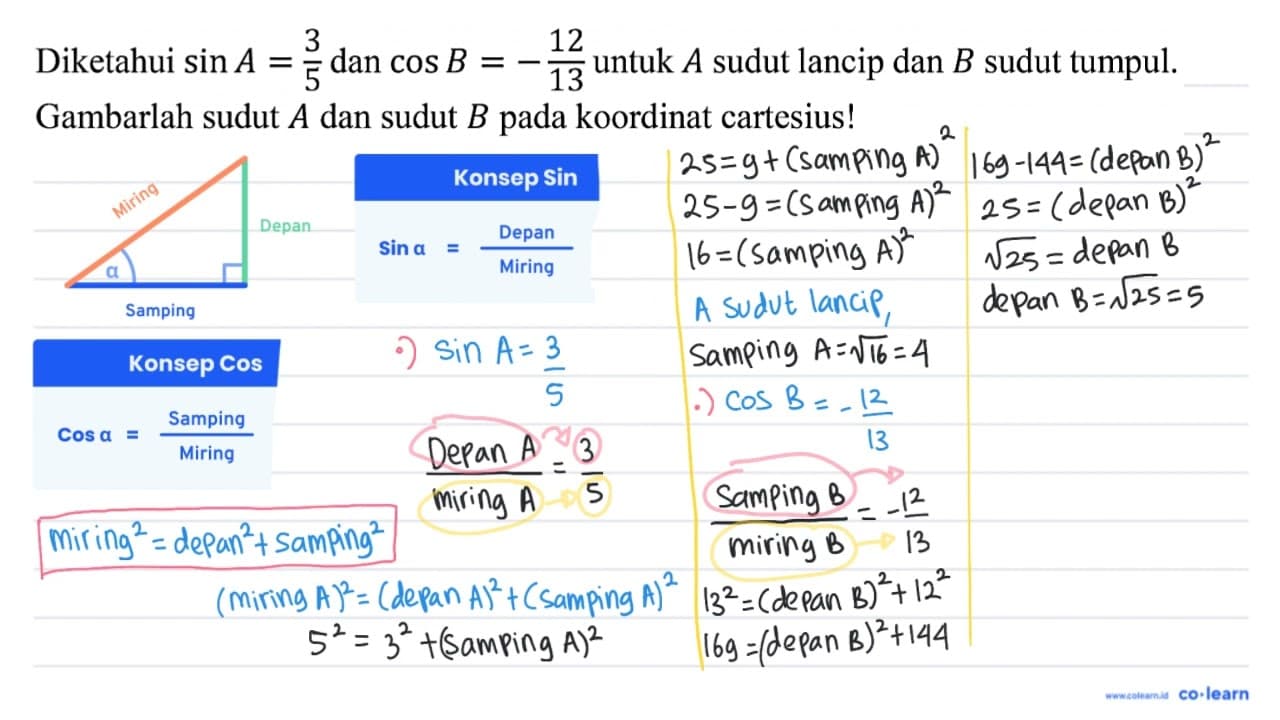 Diketahui sin A = 3/5 dan cos B = -12/13 untuk A sudut lancip dan B sudut tumpul.
Gambarlah sudut A dan sudut B pada koordinat cartesius!
Miring
Depan
α
Samping
Konsep Sin
Sin α = Depan/Miring
Konsep Cos
Cos α = Samping/Miring
miring² = depan² + samping²
•) sin A = 3/5
Depan A/miring A = 3/5
(miring A)² = (depan A)² + (samping A)²
5² = 3² + (samping A)²
25 = 9 + (samping A)²
25 - 9 = (samping A)²
16 = (samping A)²
A sudut lancip,
samping A = √16 = 4
•) cos B = -12/13
samping B/miring B = -12/13
13² = (depan B)² + 12²
169 = (depan B)² + 144
169 - 144 = (depan B)²
25 = (depan B)²
√25 = depan B
depan B = √25 = 5
www.colearn.id co·learn